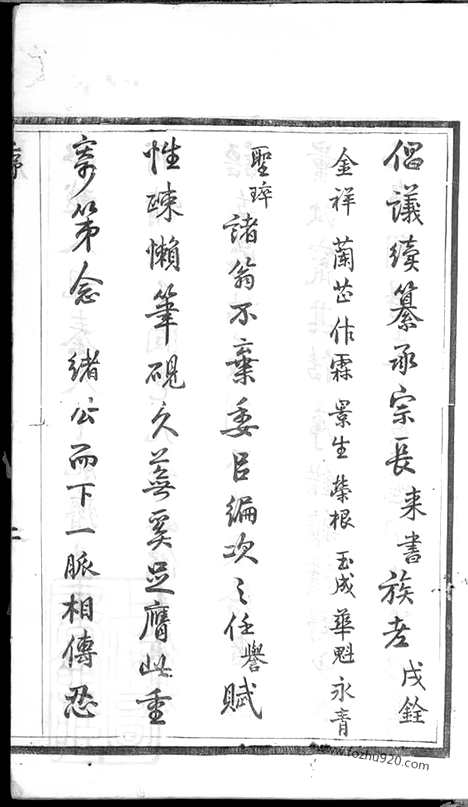 倡議續纂承宗長來書族老戌銓
金祥蘭芷作霖景生紫根玉成華魁永音
聖琗諸翁不棄委吕編次之任譽賦
性疎懶筆硯久蕪奚足膺此重
寄第念緒公而下一脈相傳忍
序
二
www.fozhu920.com